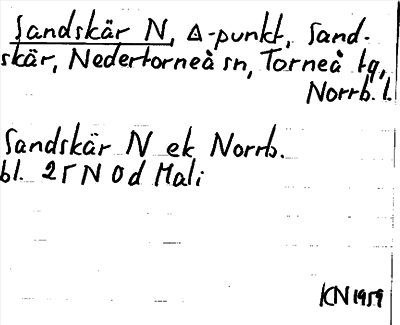 Sandskär N, Δ-punkt, Sand-
skär, Nedertorneå sn, Torneå tg,
Norrb. l.
Sandskär N ek Norrb.
bl. 25 N 0d Mali
KN 1959